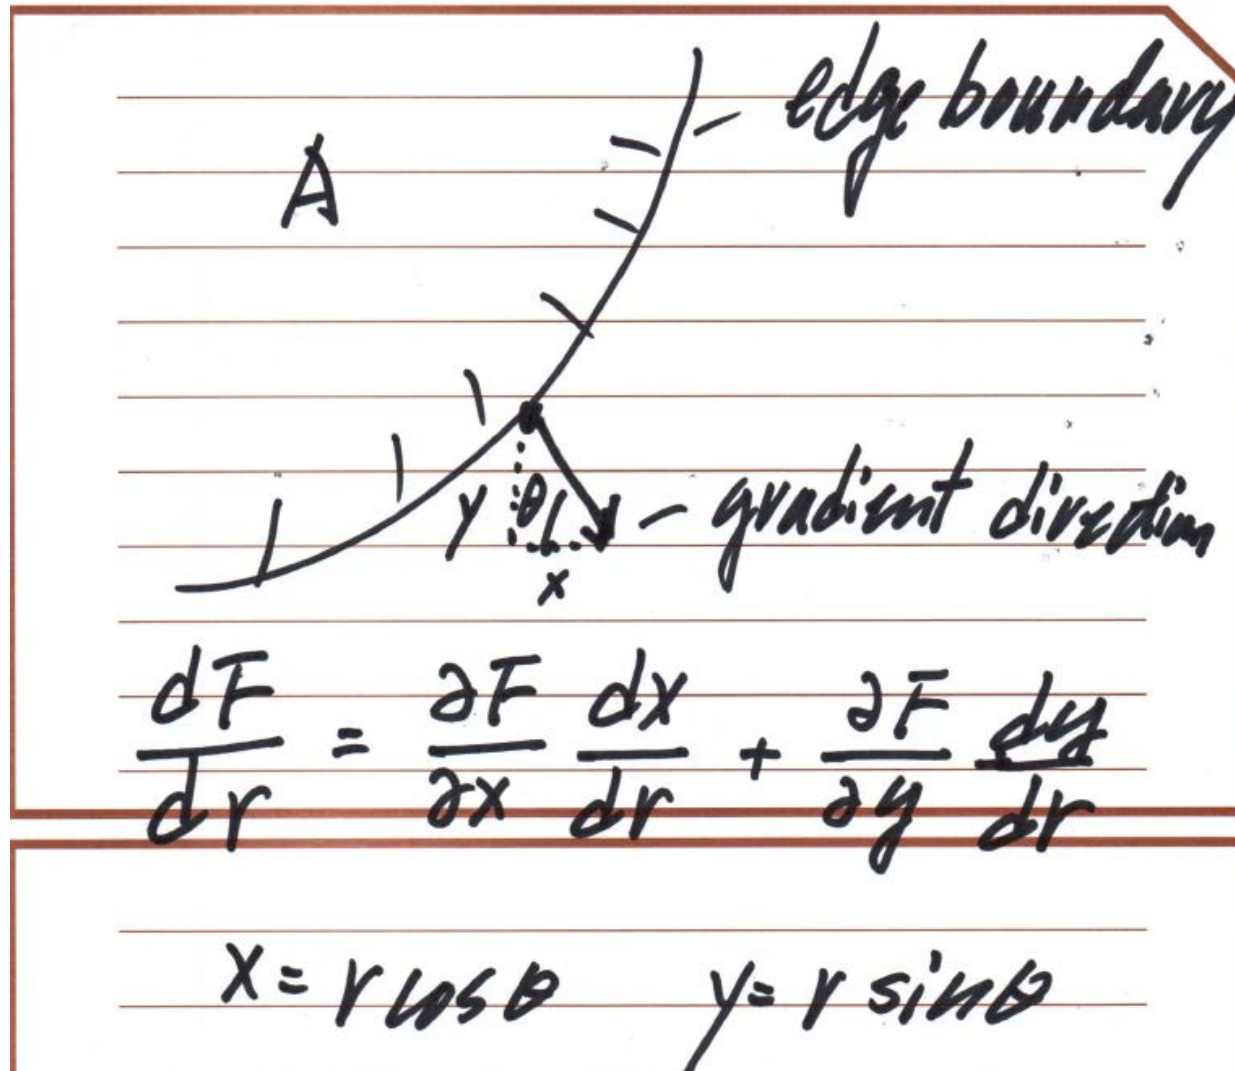 edge boundary
A
y θ
gradient direction
x
dF/dr = ∂F/∂x dx/dr + ∂F/∂y dy/dr
x = r cos θ y = r sin θ